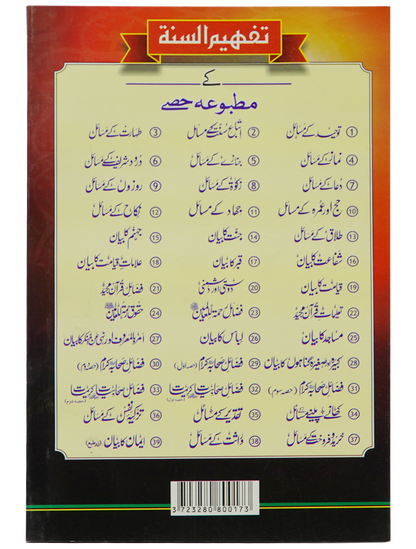 تفہیم السنۃ
کے
مطبوعہ حصے
① توحید کے مسائل ② اتباع سنت کے مسائل ③ طہارت کے مسائل
④ نماز کے مسائل ⑤ جنازے کے مسائل ⑥ درود شریف کے مسائل
⑦ دعا کے مسائل ⑧ زکوٰۃ کے مسائل ⑨ روزوں کے مسائل
⑩ حج اور عمرہ کے مسائل ⑪ جہاد کے مسائل ⑫ نکاح کے مسائل
⑬ طلاق کے مسائل ⑭ جنت کا بیان ⑮ جہنم کا بیان
⑯ شفاعت کا بیان ⑰ قبر کا بیان ⑱ علامات قیامت کا بیان
⑲ قیامت کا بیان ⑳ دوستی اور دشمنی ㉑ فضائل قرآن مجید
㉒ تعلیمات قرآن مجید ㉓ فضائل رحمۃ للعالمین ㉔ حقوق رحمۃ للعالمین
㉕ مساجد کا بیان ㉖ لباس کا بیان ㉗ امر بالمعروف اور نہی عن المنکر کا بیان
㉘ کبیرہ اور صغیرہ گناہوں کا بیان ㉙ فضائل صحابہ کرام (حصہ اول) ㉚ فضائل صحابہ کرام (حصہ دوم)
㉛ فضائل صحابہ کرام (حصہ سوم) ㉜ فضائل صحابیات (حصہ اول) ㉝ فضائل صحابیات (حصہ دوم)
㉞ کھانے پینے کے مسائل ㉟ تقدیر کے مسائل ㊱ تزکیہ نفس کے مسائل
㊲ خرید و فروخت کے مسائل ㊳ وراثت کے مسائل ㊴ ایمان کا بیان (زیر طبع)
3723280800173